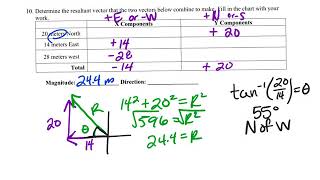 10. Determine the resultant vector that the two vectors below combine to make. Fill in the chart with your
work.
+E or -W
+N or -S
X Components
Y Components
20 meters North
+ 20
14 meters East
+14
28 meters west
-28
Total
-14
+ 20
Magnitude: 24.4 m Direction:
20
R
θ
14
14² + 20² = R²
√596 = √R²
24.4 = R
tan⁻¹(20/14) = θ
55°
N of W